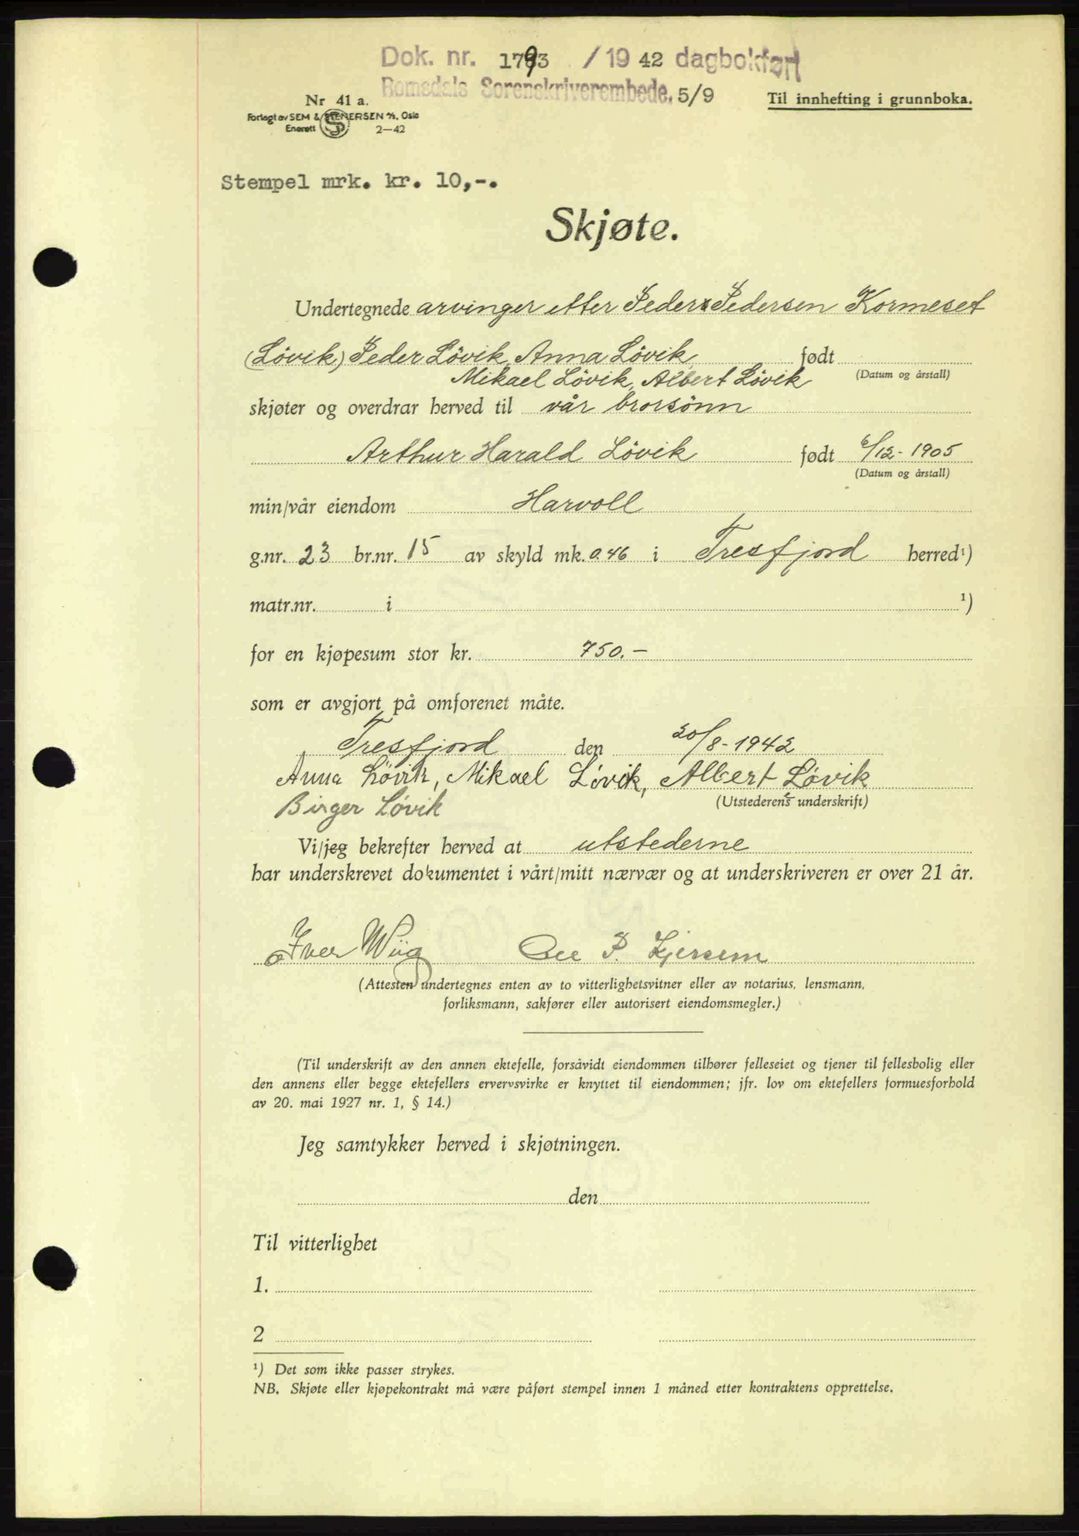 Dok. nr. 1793 / 19 42 dagbokført
Romsdals Sorenskriverembede, 5/9
Nr 41 a.
Til innhefting i grunnboka.
Forlagt av SEM & STENERSEN A/S, Oslo
Enerett 2-42
Stempel mrk. kr. 10,-.
Skjøte.
Undertegnede arvinger etter Peder Pedersen Kormeset
(Løvik) Peder Løvik, Anna Løvik født
Mikael Løvik, Albert Løvik (Datum og årstall)
skjøter og overdrar herved til vår brorsønn
Arthur Harald Løvik født 6/12-1905
(Datum og årstall)
min/vår eiendom Harvoll
g.nr. 23 br.nr. 15 av skyld mk. 0.46 i Tresfjord herred¹)
matr.nr. i ¹)
for en kjøpesum stor kr. 750.-
som er avgjort på omforenet måte.
Tresfjord den 20/8-1942
Anna Løvik, Mikael Løvik, Albert Løvik
Birger Løvik (Utstederens underskrift)
Vi/jeg bekrefter herved at utstederne
har underskrevet dokumentet i vårt/mitt nærvær og at underskriveren er over 21 år.
Iver Wiig P. Kjersem
(Attesten undertegnes enten av to vitterlighetsvitner eller av notarius, lensmann,
forliksmann, sakfører eller autorisert eiendomsmegler.)
(Til underskrift av den annen ektefelle, forsåvidt eiendommen tilhører felleseiet og tjener til fellesbolig eller
den annens eller begge ektefellers ervervsvirke er knyttet til eiendommen; jfr. lov om ektefellers formuesforhold
av 20. mai 1927 nr. 1, § 14.)
Jeg samtykker herved i skjøtningen.
den
Til vitterlighet
1.
2
¹) Det som ikke passer strykes.
NB. Skjøte eller kjøpekontrakt må være påført stempel innen 1 måned etter kontraktens opprettelse.